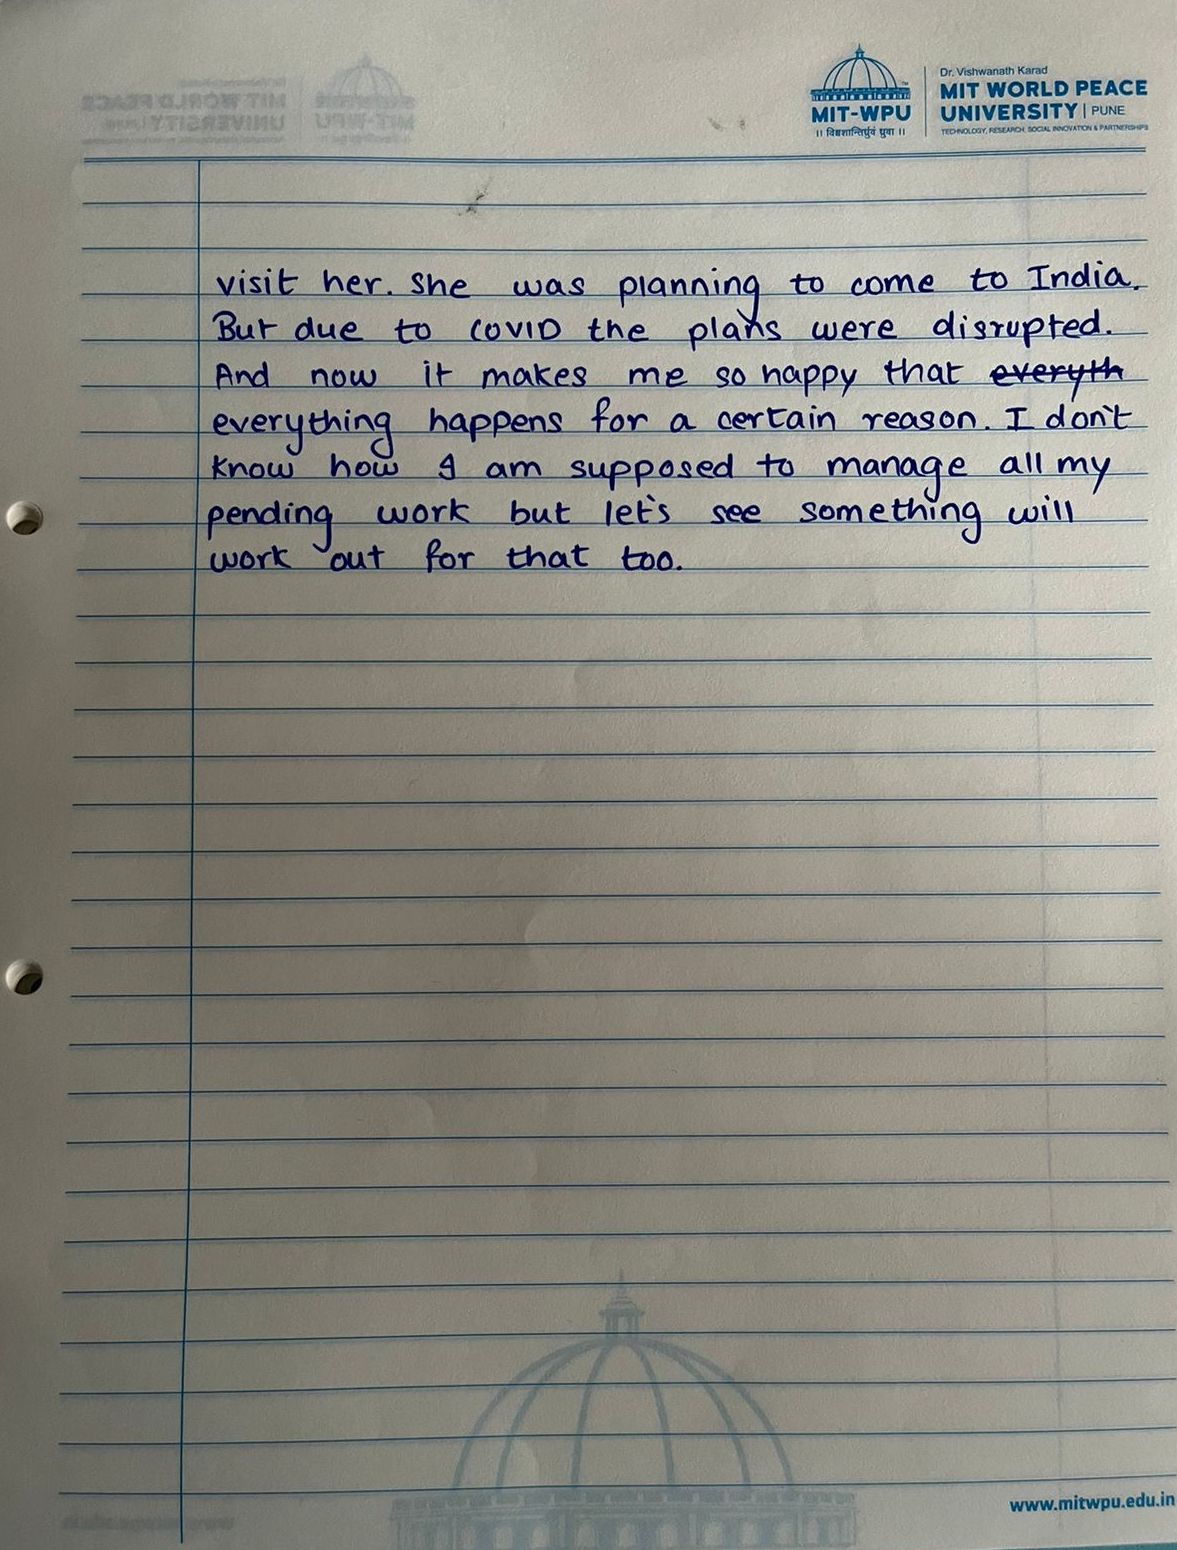 Dr. Vishwanath Karad
MIT WORLD PEACE
UNIVERSITY | PUNE
TECHNOLOGY, RESEARCH, SOCIAL INNOVATION & PARTNERSHIPS
MIT-WPU
|| विश्वशान्तिर्ध्रुवं ध्रुवा ||
visit her. She was planning to come to India.
But due to COVID the plans were disrupted.
And now it makes me so happy that everyth
everything happens for a certain reason. I don't
know how I am supposed to manage all my
pending work but let's see something will
work out for that too.
www.mitwpu.edu.in